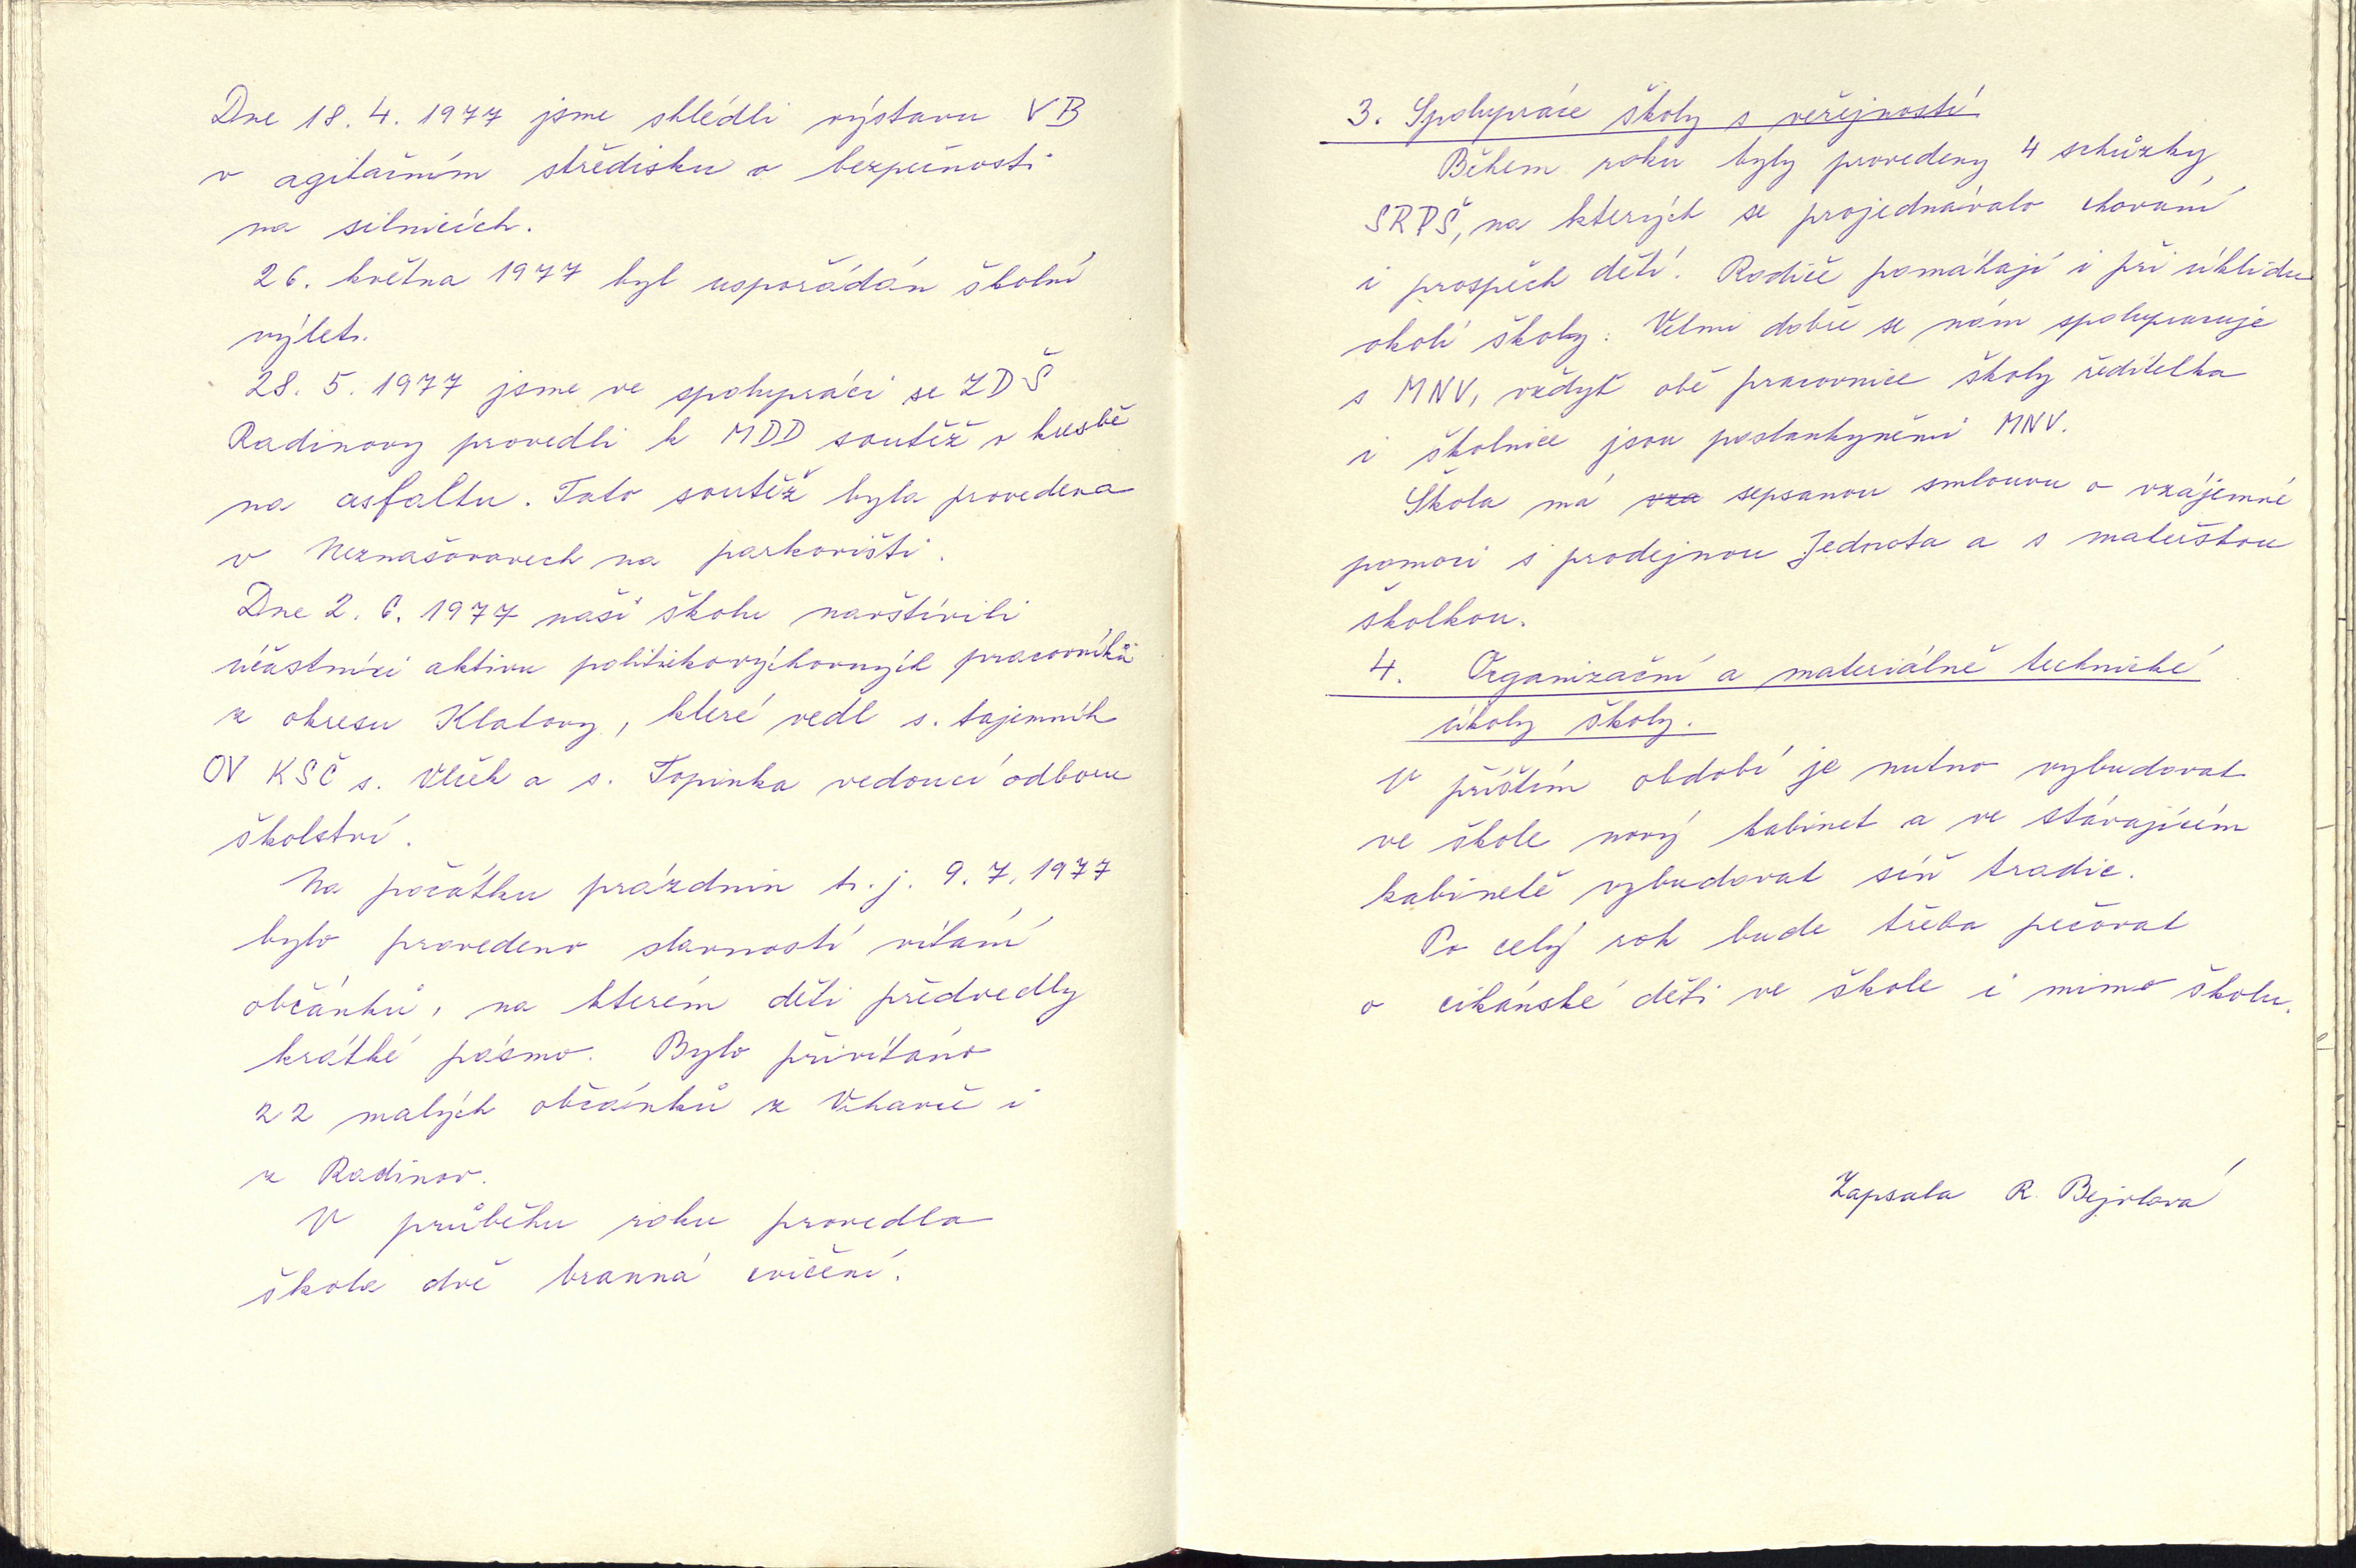 Dne 18. 4. 1977 jsme shlédli výstavu VB
v agitačním středisku o bezpečnosti
na silnicích.
26. května 1977 byl uspořádán školní
výlet.
28. 5. 1977 jsme ve spolupráci se ZDŠ
Radinovy provedli k MDD soutěž v kresbě
na asfaltu. Tato soutěž byla provedena
v Neznašovech na parkovišti.
Dne 2. 6. 1977 naši školu navštívili
účastníci aktivu politickovýchovných pracovníků
z okresu Klatovy, které vedl s. tajemník
OV KSČ s. Vlček a s. Topinka vedoucí odboru
školství.
Na počátku prázdnin t. j. 9. 7. 1977
bylo provedeno slavností vítání
občánků, na kterém děti předvedly
krátké pásmo. Bylo přivítáno
22 malých občánků z Vcharic i
z Radinov.
V průběhu roku provedla
škola dvě branná cvičení.
3. Spolupráce školy s veřejností
Během roku byly provedeny 4 schůzky
SRPŠ, na kterých se projednávalo chování
i prospěch dětí. Rodiče pomáhají i při úklidu
okolí školy. Velmi dobře se nám spolupracuje
s MNV, vždyť obě pracovnice školy ředitelka
i školnice jsou poslankyněmi MNV.
Škola má vza sepsanou smlouvu o vzájemné
pomoci s prodejnou Jednota a s mateřskou
školkou.
4. Organizační a materiálně technické
úkoly školy.
V příštím období je nutno vybudovat
ve škole nový kabinet a ve stávajícím
kabinetě vybudovat síň tradic.
Po celý rok bude třeba pečovat
o cikánské děti ve škole i mimo školu.
Zapsala R. Bejvlová